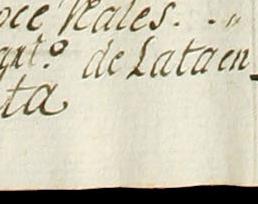 oce Reales. . „
qnt.º de Lata en
ta